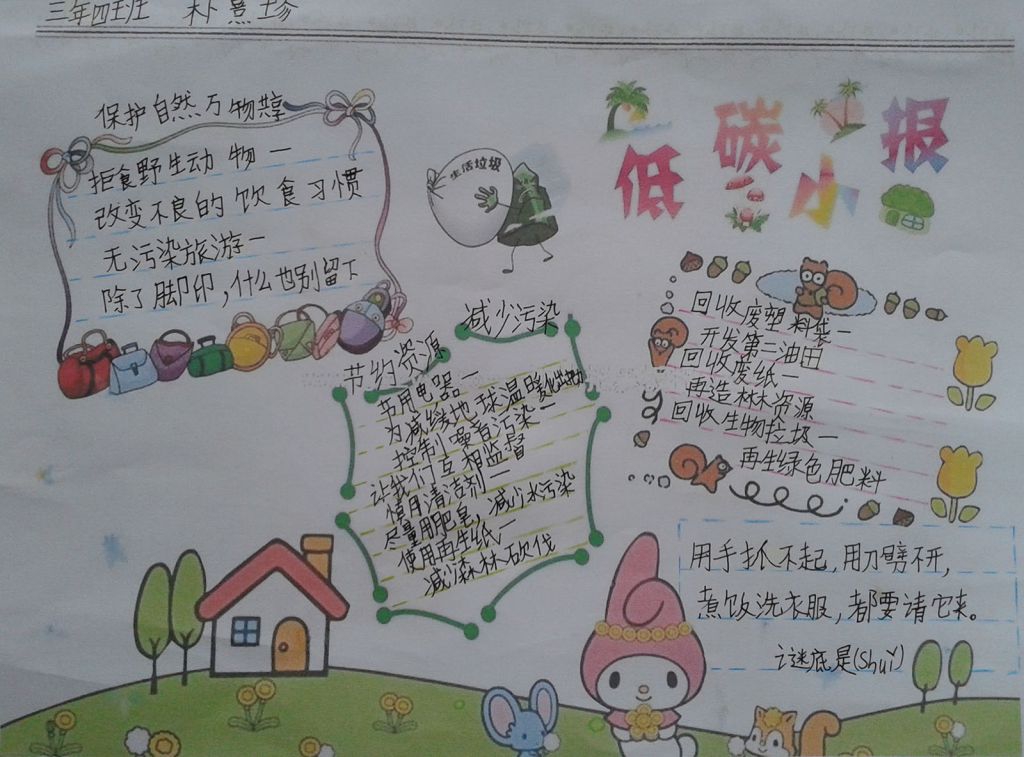 三年四班 朴景珍
低碳小报
保护自然万物共享
拒食野生动物一
改变不良的饮食习惯
无污染旅游一
除了脚印,什么也别留下
生活垃圾
减少污染
节约资源
节用电器一
为减缓地球温暖化出把力
控制噪音污染一
让我们互相监督
慎用清洁剂一
尽量用肥皂,减少水污染
使用再生纸一
减少森林砍伐
回收废塑料袋一
开发第二油田
回收废纸一
再造林林资源
回收生物垃圾一
再生绿色肥料
用手抓不起,用刀劈不开,
煮饭洗衣服,都要请它来。
谜底是(Shuǐ)